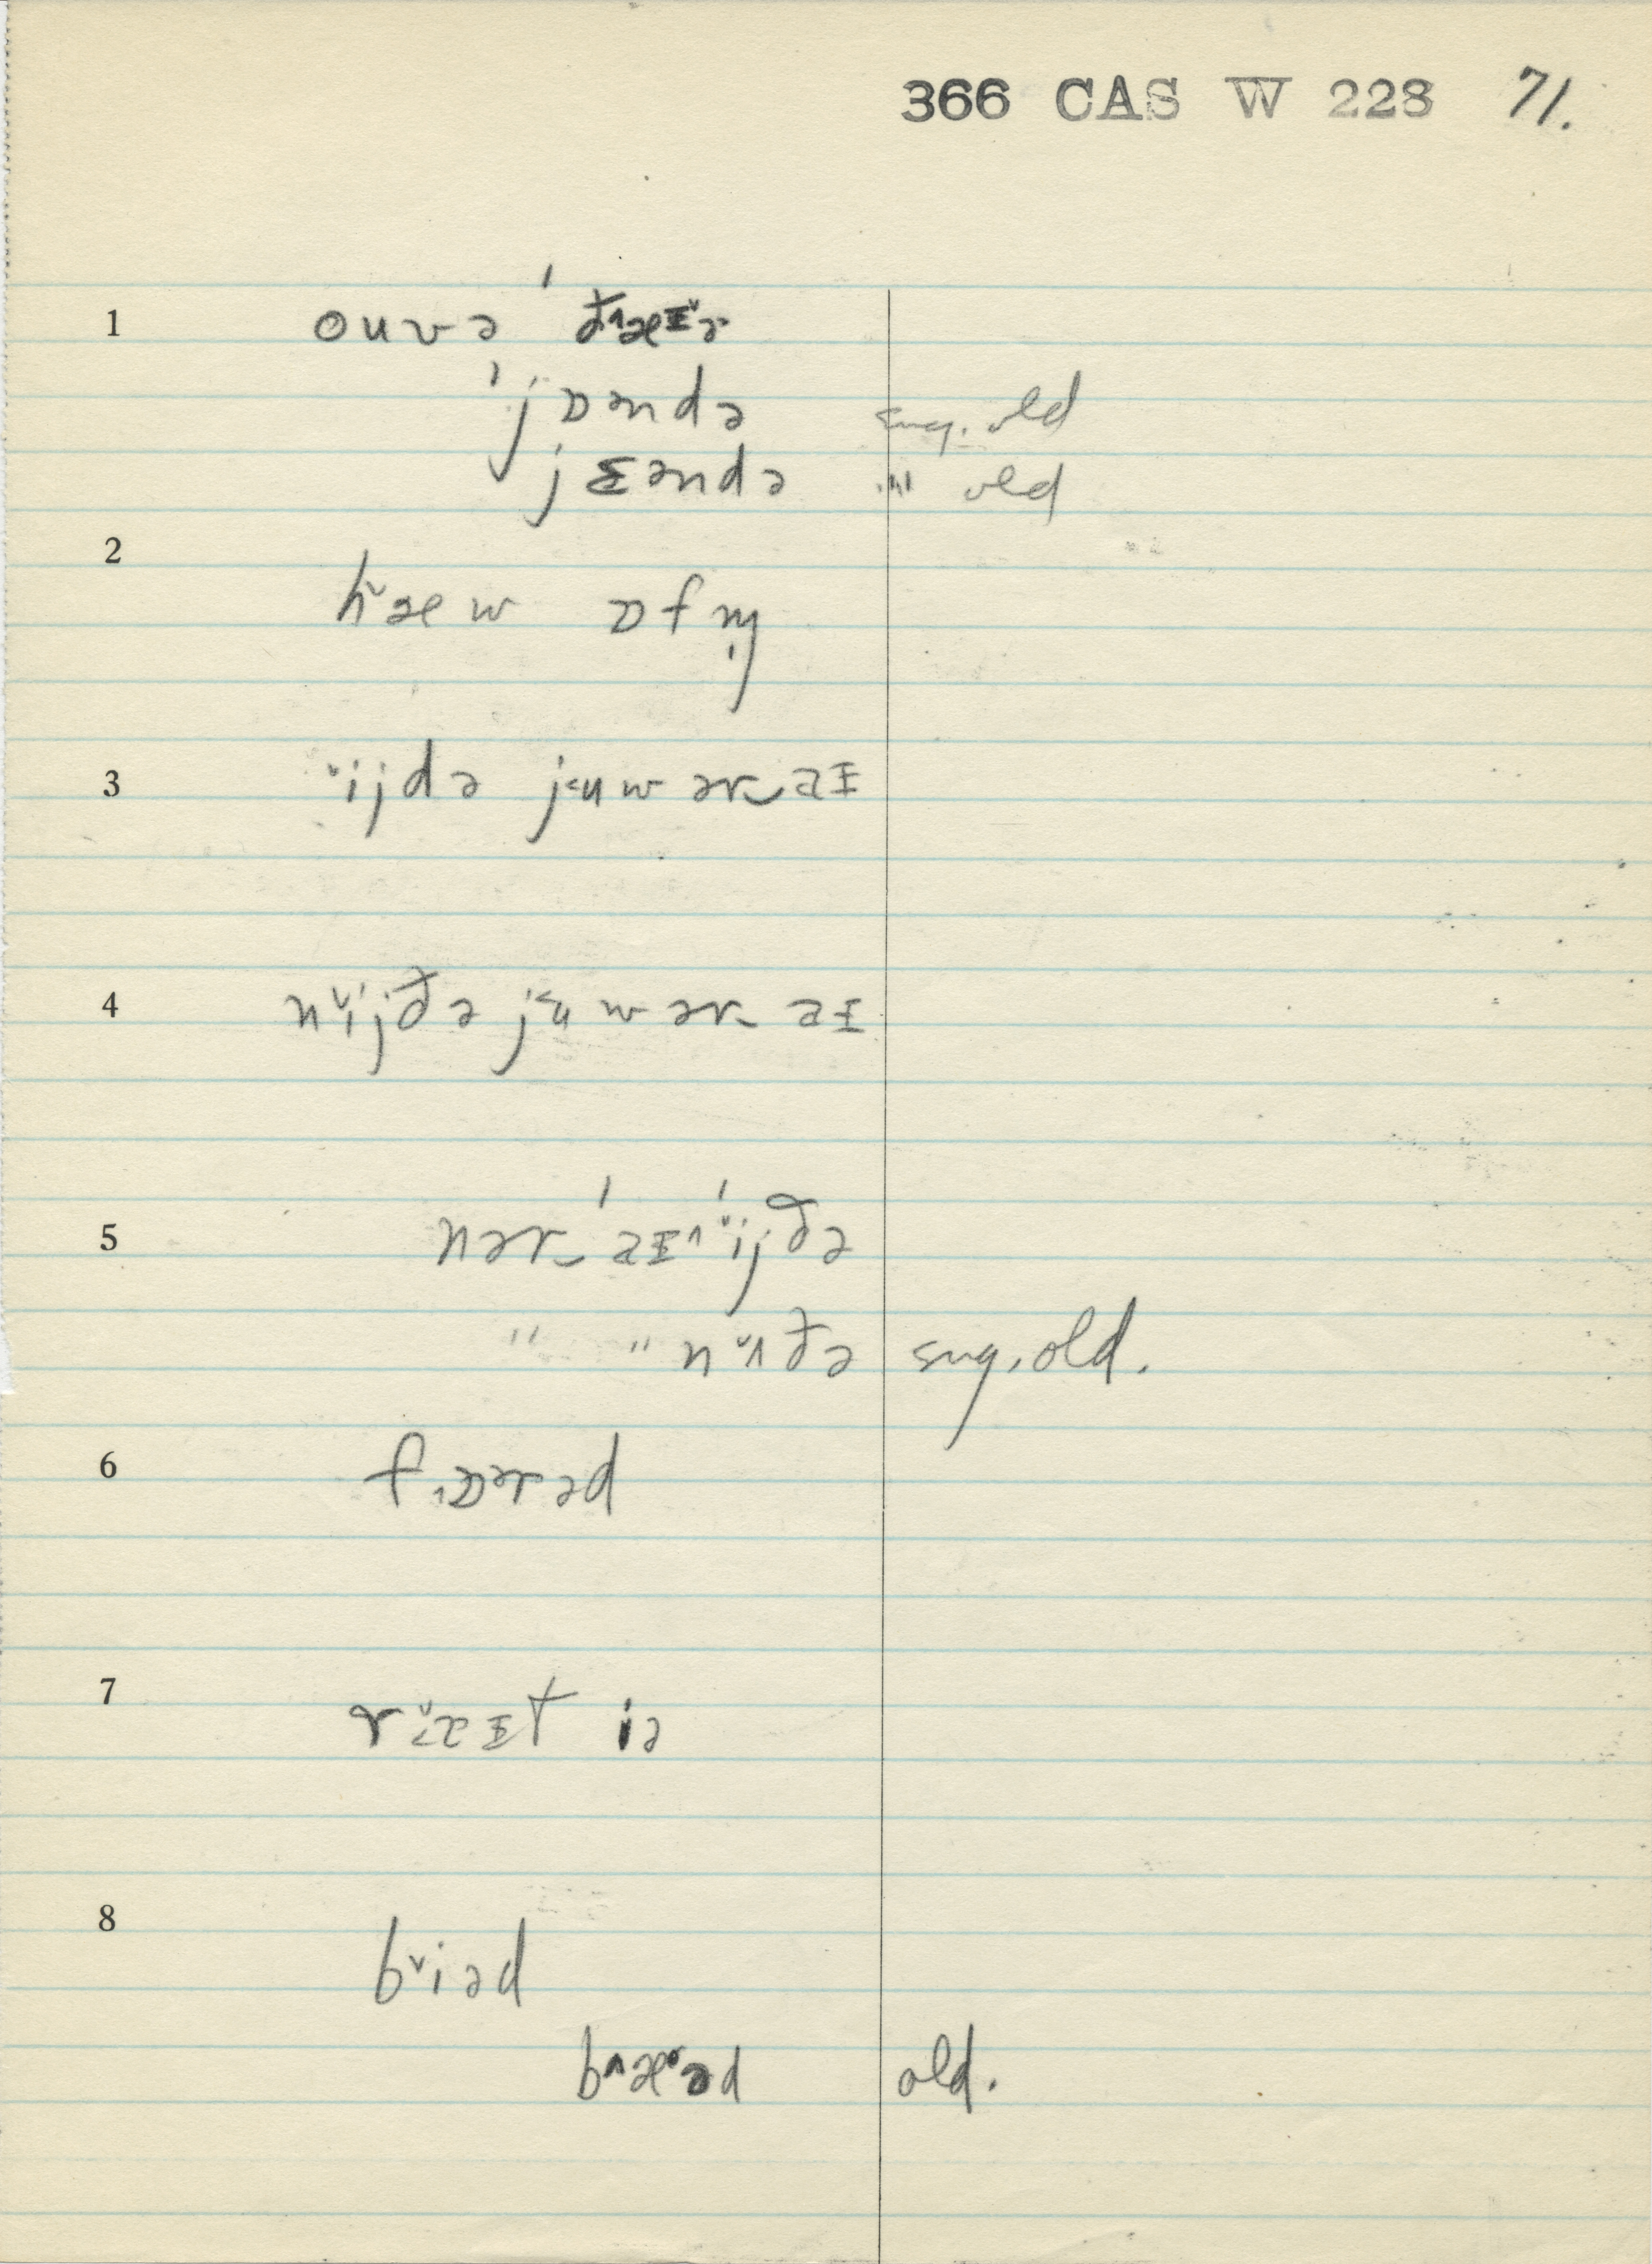 366 CAS W 228 71.
1 ouvə 'ð˄æɪ˅ə
'jɒəndə sug. old
jɛəndə "' old
2 h˅æw ɒfn̩
3 ˅ijdə j˂uwər‿aɪ
4 n˅ijðə j˂uwər‿aɪ
5 nər‿'aɪ˄'˅ijðə
" " n˅ʌðə sug. old.
6 f˄ɒərəd
7 r˅æɪt iə
8 b˅iəd
b˄æ˅əd old.